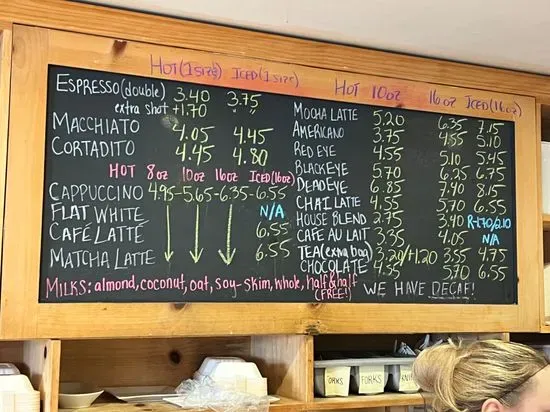 HOT (1 size) ICED (1 size)
ESPRESSO (double) 3.40 3.75
extra shot +1.70 " "
MACCHIATO 4.05 4.45
CORTADITO 4.45 4.80
HOT 8oz 10oz 16oz ICED (16oz)
CAPPUCCINO 4.95 - 5.65 - 6.35 - 6.55
FLAT WHITE N/A
CAFÉ LATTÉ 6.55
MATCHA LATTE 6.55
HOT 10oz 16oz ICED (16oz)
MOCHA LATTE 5.20 6.35 7.15
AMERICANO 3.75 4.55 5.10
RED EYE 4.55 5.10 5.45
BLACK EYE 5.70 6.25 6.75
DEAD EYE 6.85 7.40 8.15
CHAI LATTE 4.55 5.70 6.55
HOUSE BLEND 2.75 3.40 R-4.70/2.10
CAFE AU LAIT 3.35 4.05 N/A
TEA (extra bag) 3.20/+1.20 3.55 4.75
CHOCOLATE 4.35 5.70 6.55
MILKS: almond, coconut, oat, soy - skim, whole, half & half (FREE!)
WE HAVE DECAF!
FORKS
FORKS